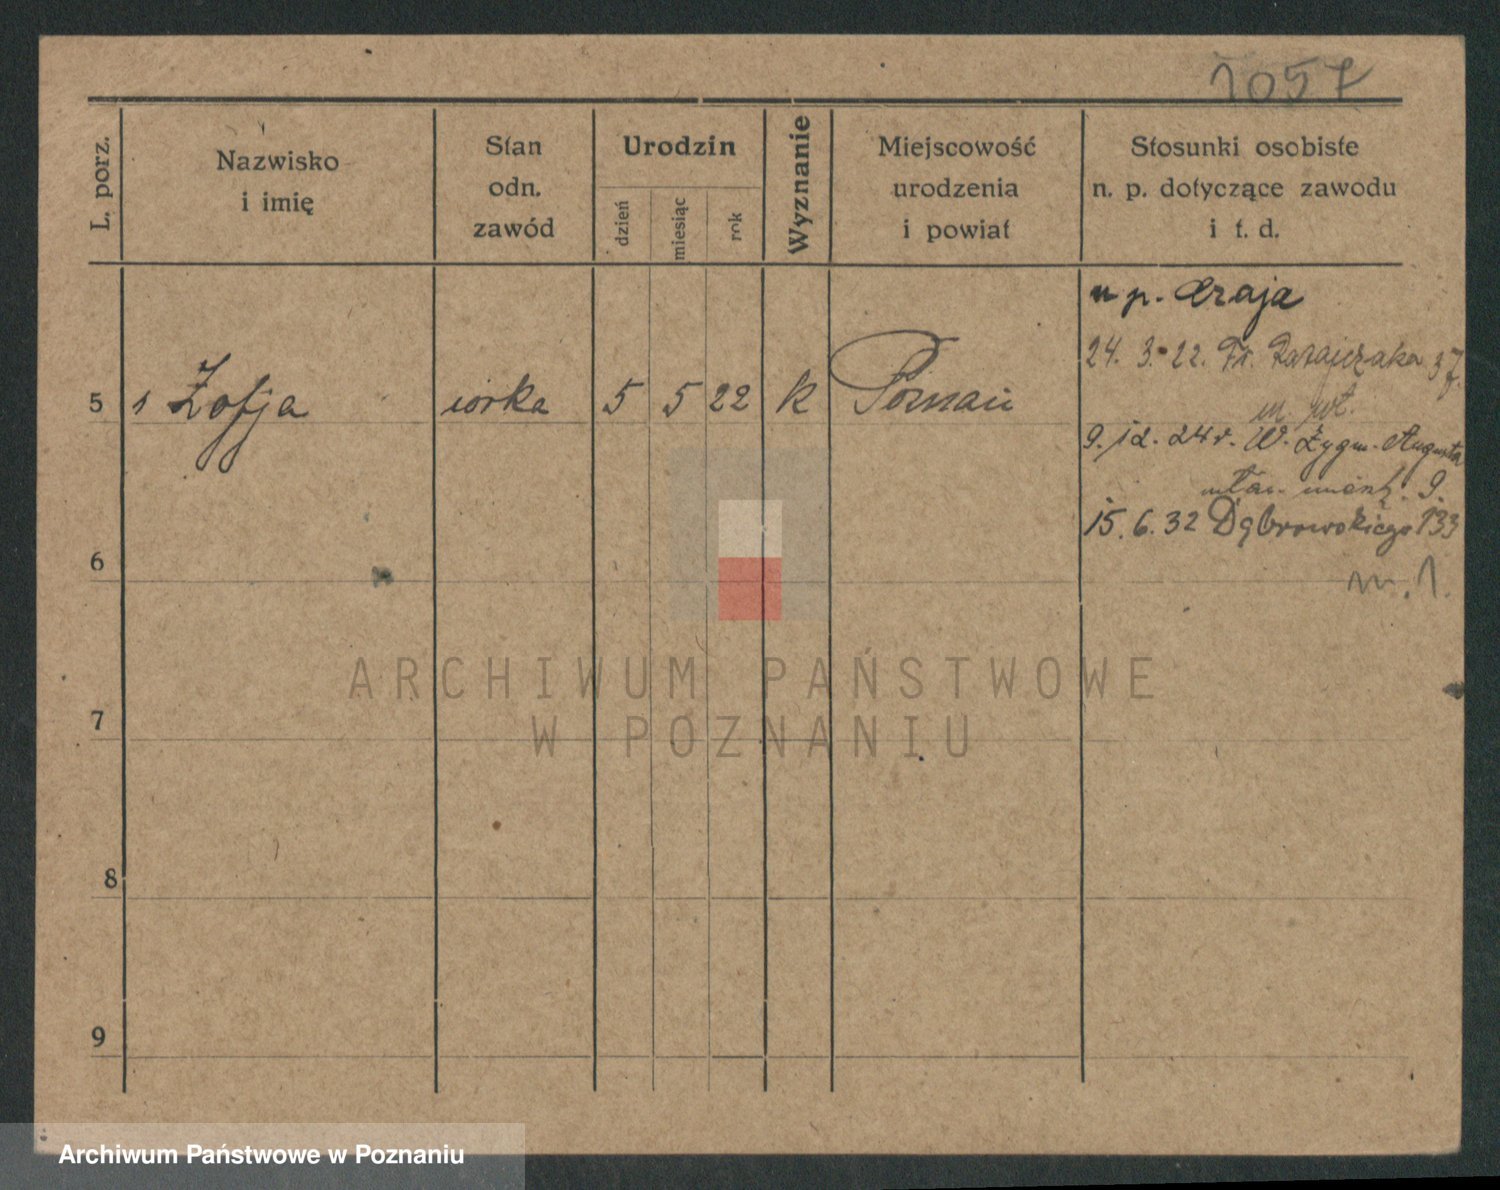 1057
L. porz.
Nazwisko
i imię
Stan
odn.
zawód
Urodzin
dzień
miesiąc
rok
Wyznanie
Miejscowość
urodzenia
i powiat
Stosunki osobiste
n. p. dotyczące zawodu
i t. d.
n p.
24. 3. 22. Fr. Ratajczaka 37
5 1 Zofja córka 5 5 22 k Poznań
9. 12. 24 r. W. Zygm. Augusta
9.
15. 6. 32 Dąbrowskiego 133
6
m. 1.
7
8
9
ARCHIWUM PAŃSTWOWE
W POZNANIU
Archiwum Państwowe w Poznaniu